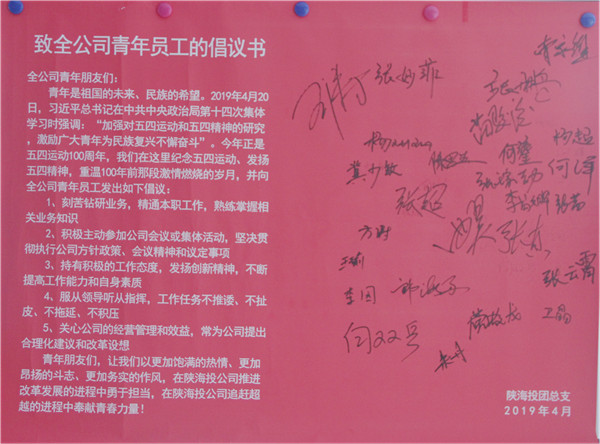 致全公司青年员工的倡议书
全公司青年朋友们：
青年是祖国的未来、民族的希望。2019年4月20
日，习近平总书记在中共中央政治局第十四次集体
学习时强调：“加强对五四运动和五四精神的研究
，激励广大青年为民族复兴不懈奋斗”。今年正是
五四运动100周年，我们在这里纪念五四运动、发扬
五四精神，重温100年前那段激情燃烧的岁月，并向
全公司青年员工发出如下倡议：
1、刻苦钻研业务，精通本职工作，熟练掌握相
关业务知识
2、积极主动参加公司会议或集体活动，坚决贯
彻执行公司方针政策、会议精神和议定事项
3、持有积极的工作态度，发扬创新精神，不断
提高工作能力和自身素质
4、服从领导听从指挥，工作任务不推诿、不扯
皮、不拖延、不积压
5、关心公司的经营管理和效益，常为公司提出
合理化建议和改革设想
青年朋友们，让我们以更加饱满的热情、更加
昂扬的斗志、更加务实的作风，在陕海投公司推进
改革发展的进程中勇于担当，在陕海投公司追赶超
越的进程中奉献青春力量！
张妙菲
杨超
何莹
张超
张云霄
闫双兵
卫晶
陕海投团总支
2019年4月